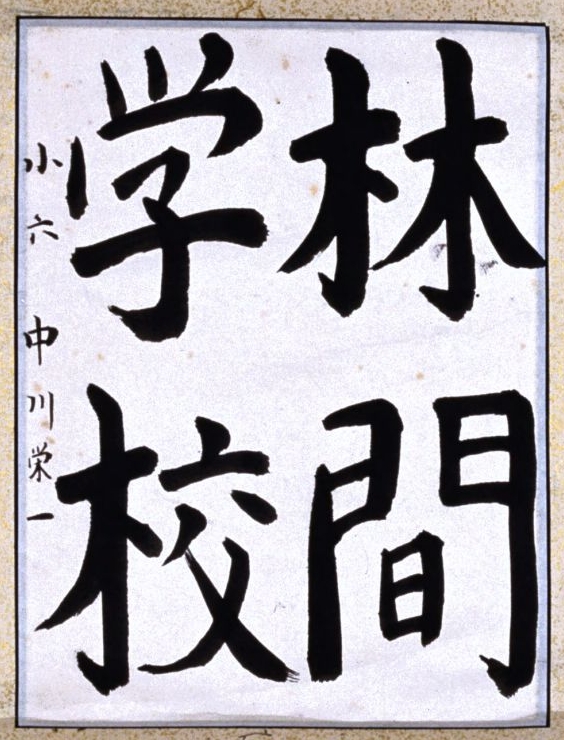 林間
学校
小六 中川栄一